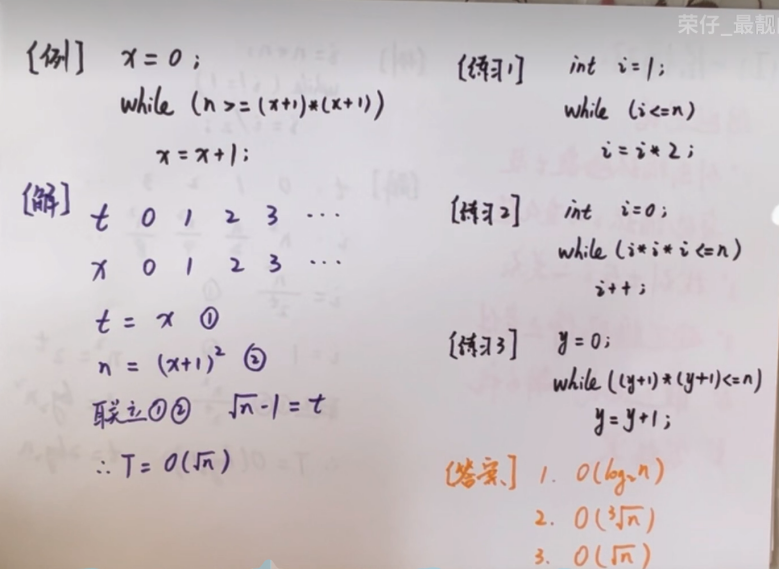 荣仔_最靓
[例] x=0;
while (n>=(x+1)*(x+1))
x=x+1;
[解] t 0 1 2 3 ...
x 0 1 2 3 ...
t = x ①
n = (x+1)² ②
联立①② √n-1=t
∴T=O(√n)
[练习1] int i=1;
while (i<=n)
i=i*2;
[练习2] int i=0;
while(i*i*i<=n)
i++;
[练习3] y=0;
while((y+1)*(y+1)<=n)
y=y+1;
[答案] 1. O(log₂n)
2. O(³√n)
3. O(√n)